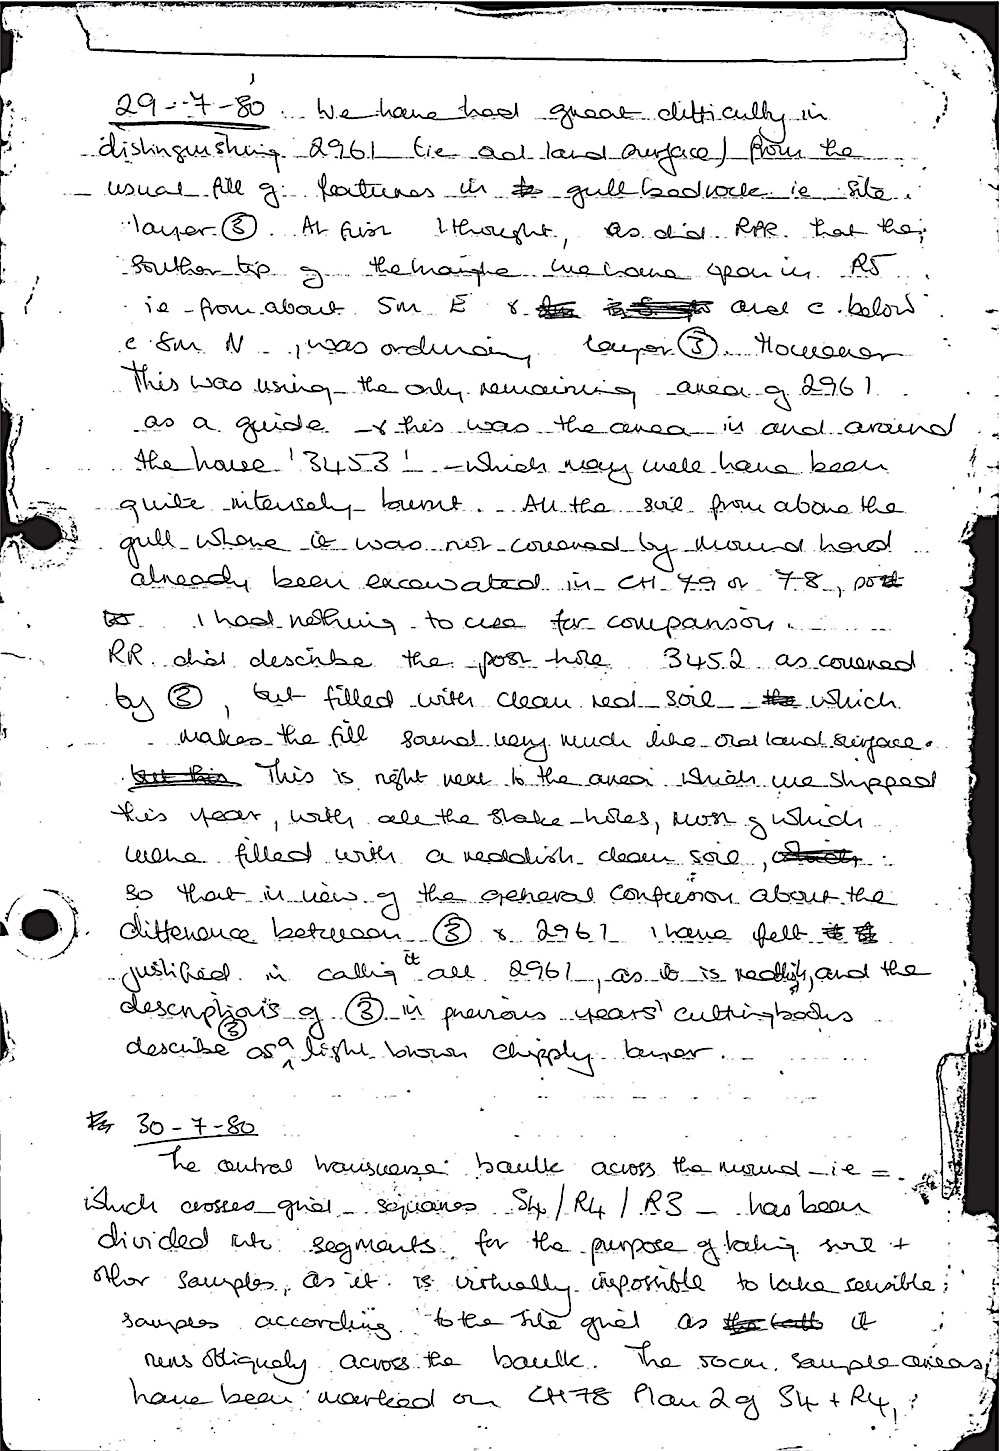 29-7-80. We have had great difficulty in
distinguishing 2961 (ie old land surface) from the
usual fill of features in gull bedrock ie site
layer ③. At first I thought, as did RR that the
southern tip of the we have open in R5
ie from about 5m E & and c. below
c 8m N, was ordinary layer ③. However
this was using the only remaining area of 2961
as a guide & this was the area in and around
the house '3453' - which may well have been
quite intensely burnt. All the soil from above the
gull where it was not covered by mound had
already been excavated in CH 79 or 78,
I had nothing to use for comparison.
RR did describe the post-hole 3452 as covered
by ③, but filled with clean red soil which
makes the fill sound very much like old land surface.
This is right next to the area which we stripped
this year, with all the stake-holes, most of which
were filled with a reddish clean soil,
so that in view of the general confusion about the
difference between ③ & 2961 I have felt
justified in calling it all 2961, as it is reddish, and the
descriptions of ③ in previous years' cutting books
describe ③ as a light brown chipply layer.
30-7-80
The central transverse baulk across the mound - ie
which crosses grid squares S4/R4/R3 - has been
divided into segments for the purpose of taking soil +
other samples, as it is virtually impossible to take sensible
samples according to the site grid as it
runs obliquely across the baulk. The sample areas
have been marked on CH78 Plan 2 of S4 + R4,